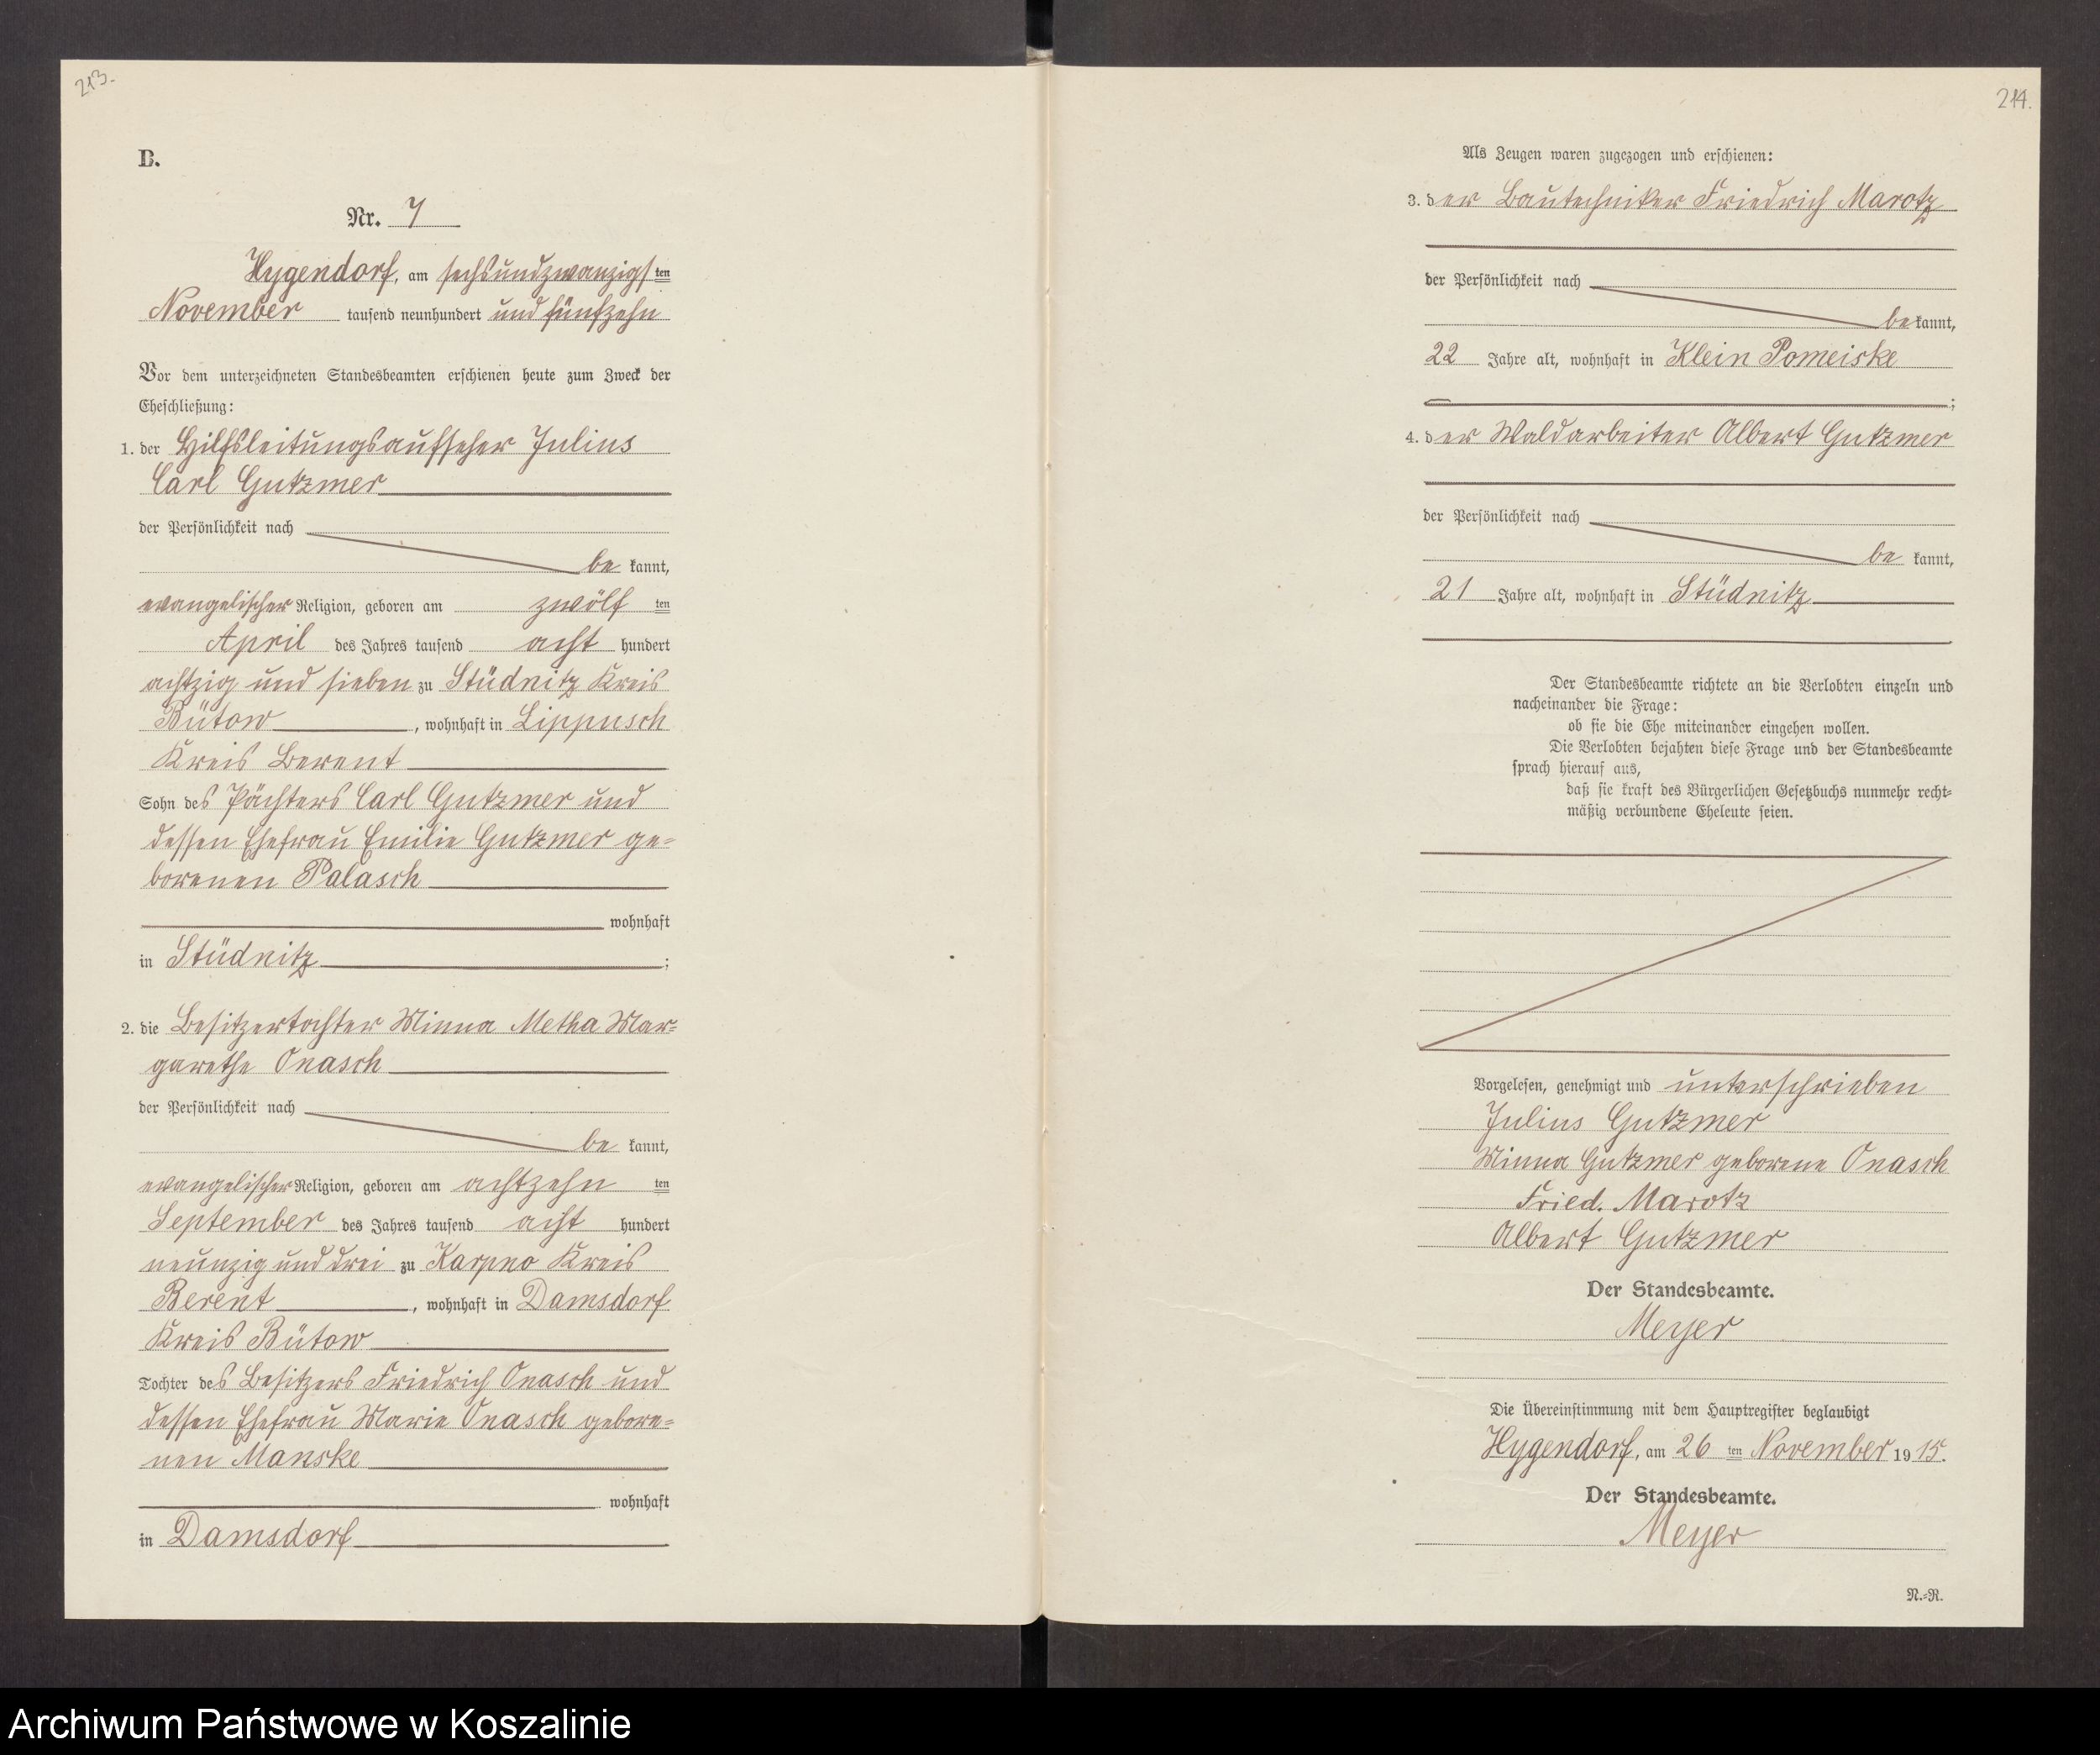 213.
B.
Nr. 7
Hygendorf, am sechsundzwanzigsten
November tausend neunhundert und fünfzehn
Vor dem unterzeichneten Standesbeamten erschienen heute zum Zweck der
Eheschließung:
1. der Hilfsleitungsaufseher Julius
Carl Gutzmer
der Persönlichkeit nach
be kannt,
evangelischer Religion, geboren am zwölf ten
April des Jahres tausend acht hundert
achtzig und sieben zu Stüdnitz Kreis
Bütow, wohnhaft in Lippusch
Kreis Berent
Sohn des Pächters Carl Gutzmer und
dessen Ehefrau Emilie Gutzmer ge=
borenen Palasch
wohnhaft
in Stüdnitz;
2. die Besitzertochter Minna Metha Mar=
garethe Onasch
der Persönlichkeit nach
be kannt,
evangelischer Religion, geboren am achtzehn ten
September des Jahres tausend acht hundert
neunzig und drei zu Karpno Kreis
Berent, wohnhaft in Damsdorf
Kreis Bütow
Tochter des Besitzers Friedrich Onasch und
dessen Ehefrau Marie Onasch gebore=
nen Manske
wohnhaft
in Damsdorf
214.
Als Zeugen waren zugezogen und erschienen:
3. der Bautechniker Friedrich Marotz
der Persönlichkeit nach
bekannt,
22 Jahre alt, wohnhaft in Klein Pomeiske
;
4. der Waldarbeiter Albert Gutzmer
der Persönlichkeit nach
be kannt,
21 Jahre alt, wohnhaft in Stüdnitz
Der Standesbeamte richtete an die Verlobten einzeln und
nacheinander die Frage:
ob sie die Ehe miteinander eingehen wollen.
Die Verlobten bejahten diese Frage und der Standesbeamte
sprach hierauf aus,
daß sie kraft des Bürgerlichen Gesetzbuchs nunmehr recht=
mäßig verbundene Eheleute seien.
Vorgelesen, genehmigt und unterschrieben
Julius Gutzmer
Minna Gutzmer geborene Onasch
Fried. Marotz
Albert Gutzmer
Der Standesbeamte.
Meyer
Die Übereinstimmung mit dem Hauptregister beglaubigt
Hygendorf, am 26 ten November 1915.
Der Standesbeamte.
Meyer
N.=R.
Archiwum Państwowe w Koszalinie